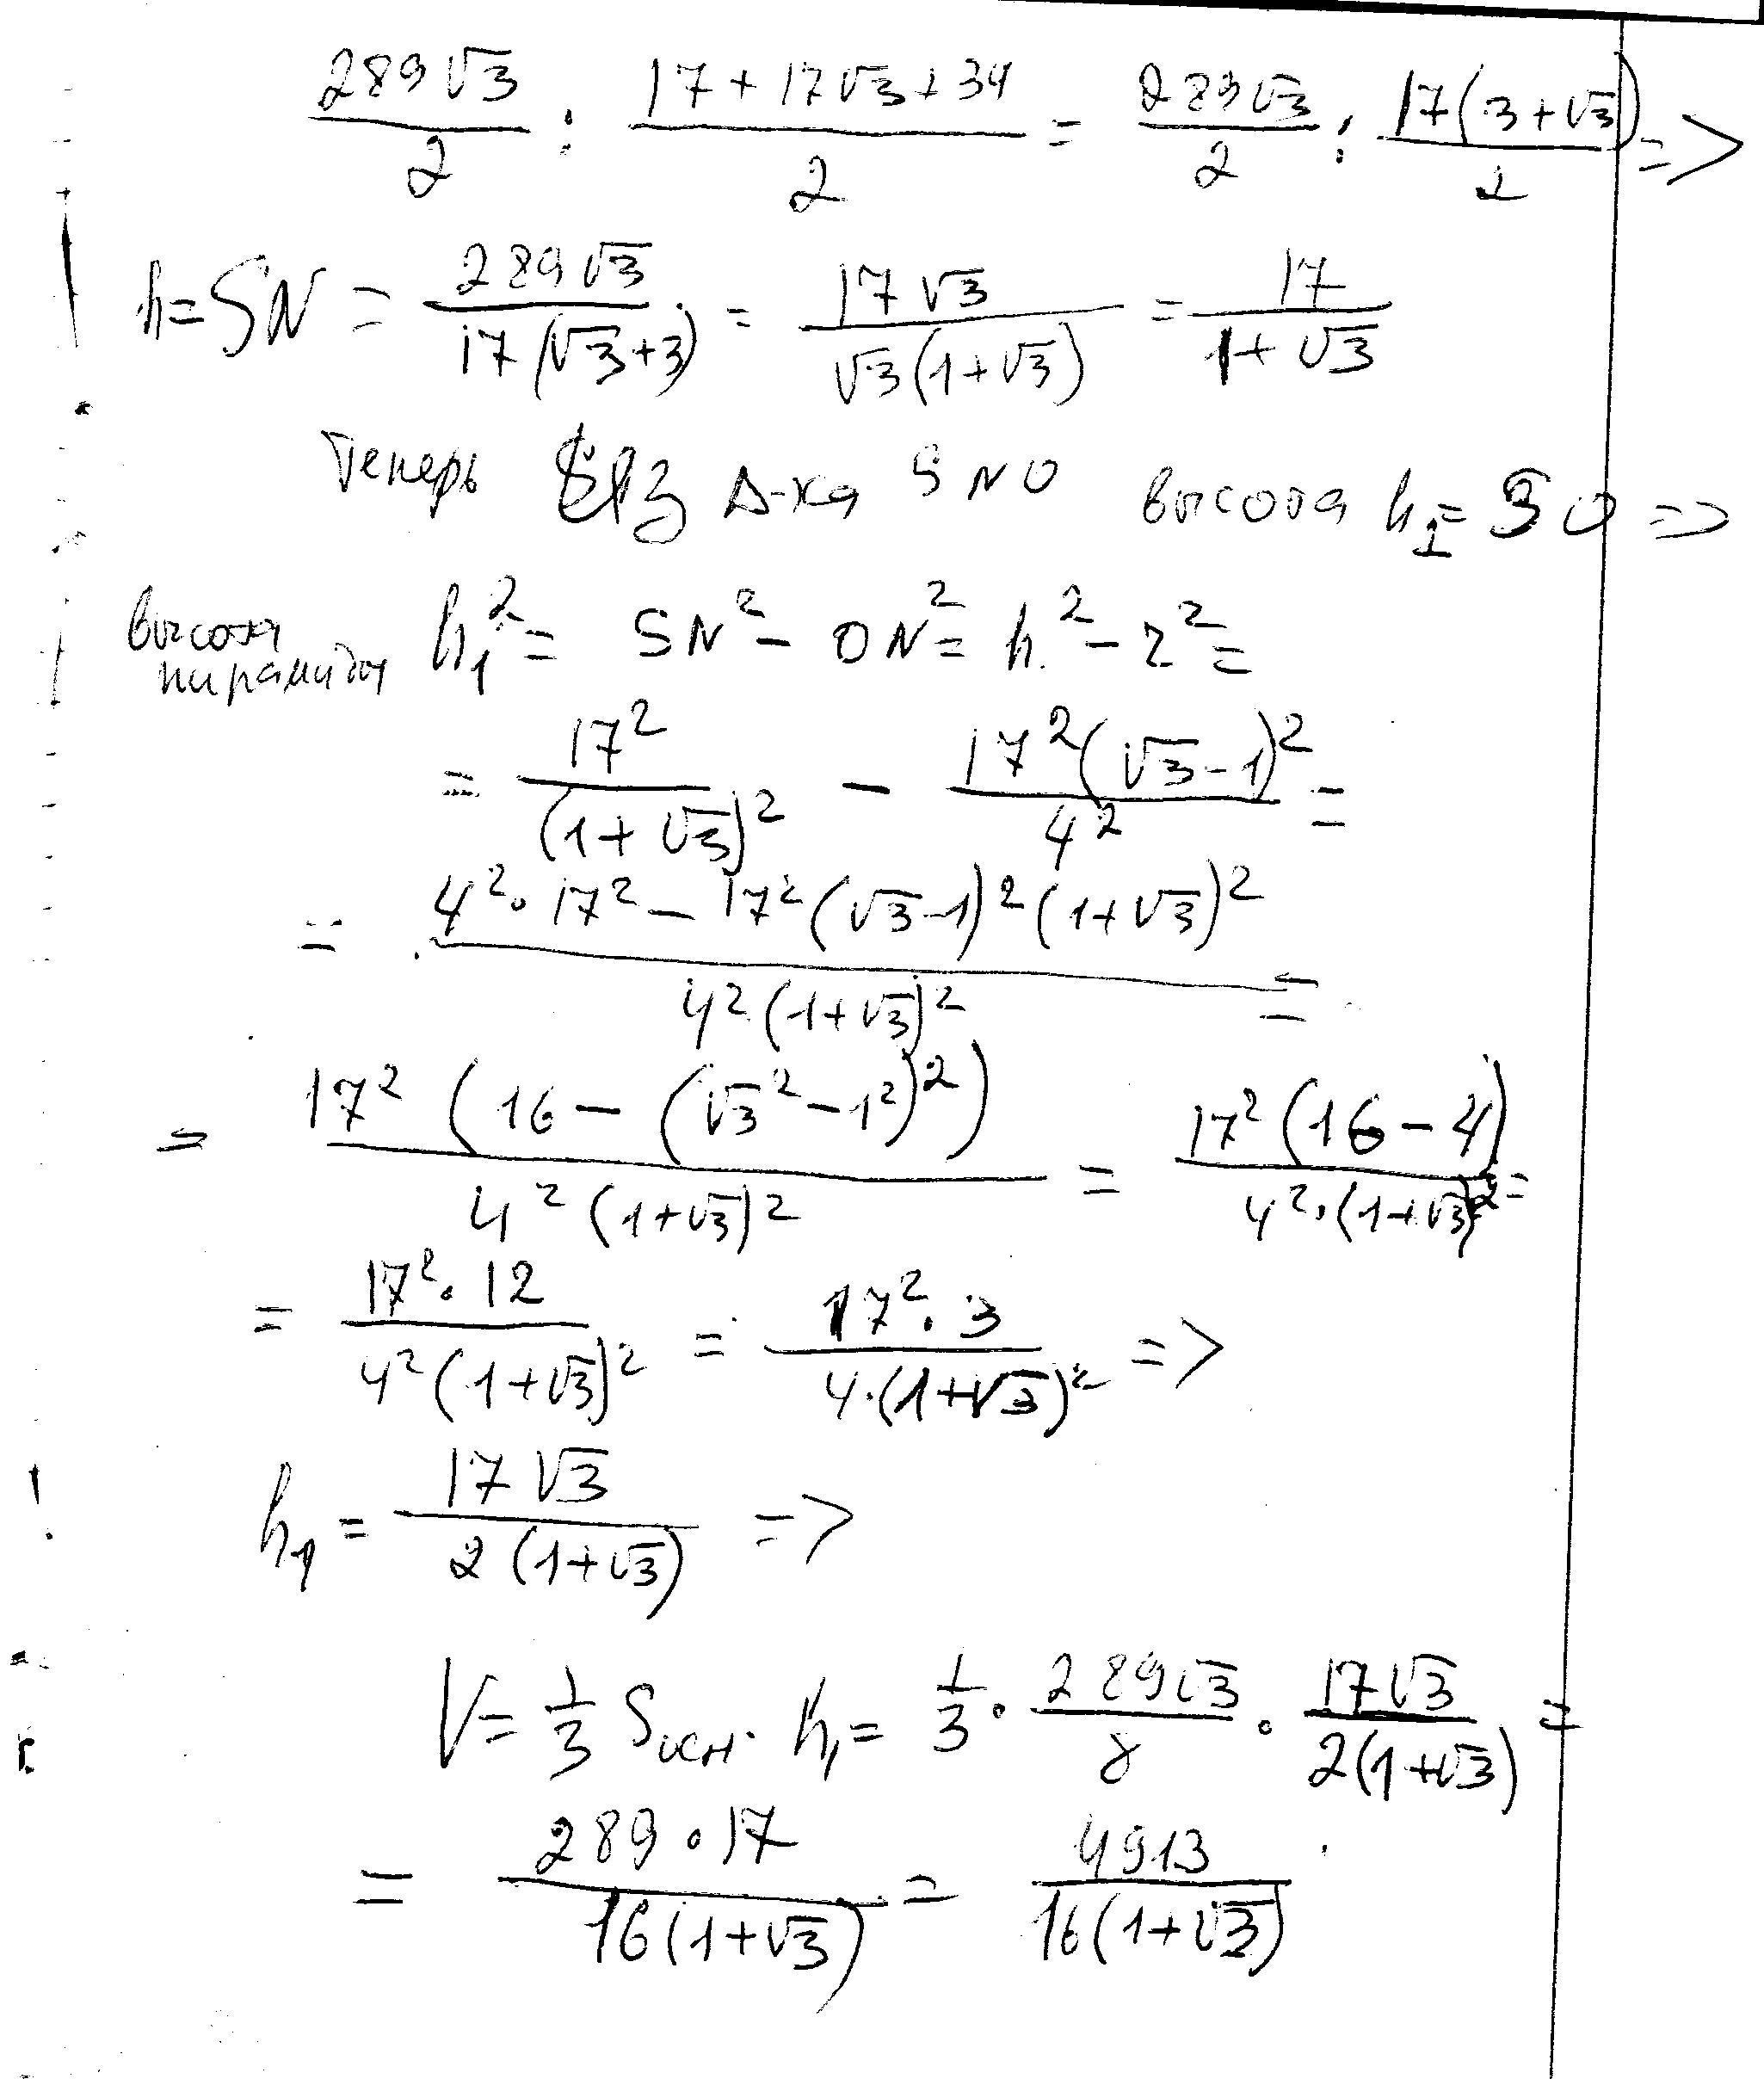 289√3/2 : (17+17√3+34)/2 = 289√3/2 : 17(3+√3)/2 =>
h=SN = 289√3/(17(√3+3)) = 17√3/(√3(1+√3)) = 17/(1+√3)
Теперь из Δ-ка SNO высота h₁=SO =>
высота пирамиды h₁² = SN² - ON² = h² - r² =
= 17²/(1+√3)² - 17²(√3-1)²/4² =
= (4²·17² - 17²(√3-1)²(1+√3)²)/(4²(1+√3)²) =
= 17²(16-(√3²-1²)²)/(4²(1+√3)²) = 17²(16-4)/(4²·(1+√3)²) =
= 17²·12/(4²(1+√3)²) = 17²·3/(4·(1+√3)²) =>
h₁ = 17√3/(2(1+√3)) =>
V = 1/3 Sосн· h₁ = 1/3 · 289√3/8 · 17√3/(2(1+√3)) =
= 289·17/(16(1+√3)) = 4913/(16(1+√3))